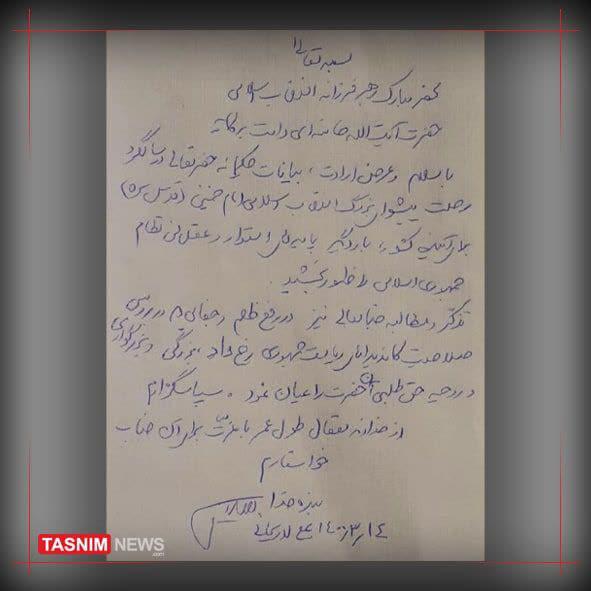 بسمه تعالی
محضر مبارک رهبر فرزانه انقلاب اسلامی
حضرت آیت الله خامنه ای دامت برکاته
با سلام و عرض ارادت، بیانات حکیمانه حضرتعالی در سالگرد
رحلت پیشوای بزرگ انقلاب اسلامی امام خمینی (قدس سره)
برای آتیه کشور، بار دیگر پایه های استوار و عقلانی نظام
جمهوری اسلامی را ظهور بخشید.
تذکر و مطالبه جنابعالی نیز در رفع ظلم و جفای در بررسی
صلاحیت کاندیداهای ریاست جمهوری رخ داد، بزرگی و بزرگواری
و روحیه حق طلبی آن حضرت را عیان نمود. سپاسگزارم
از خداوند متعال طول عمر با عزت برای آن جناب
خواستارم
بنده خدا
۱۴۰۰/۳/۱۴ علی لاریجانی
TASNIM NEWS
.com